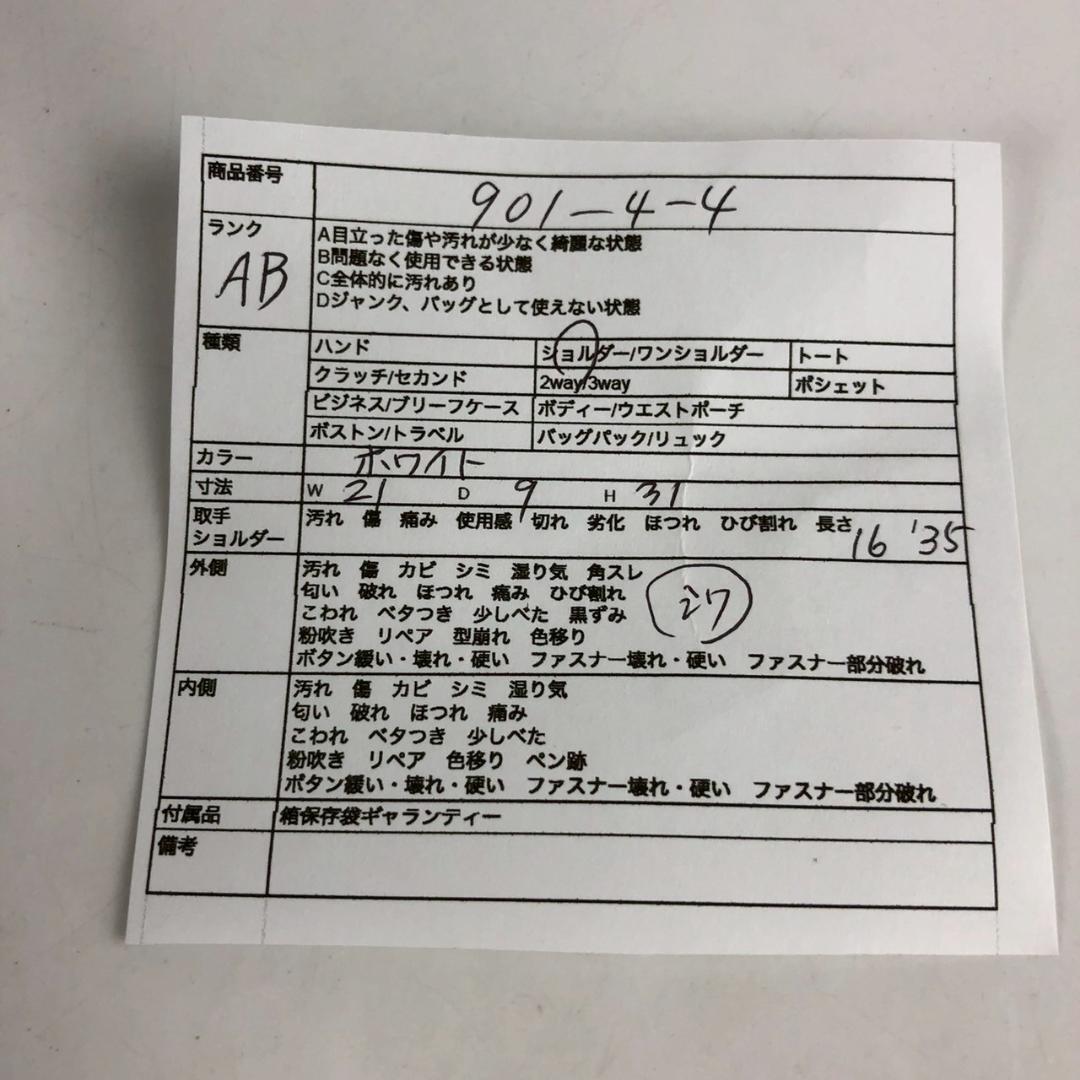 商品番号 901-4-4
ランク AB
A目立った傷や汚れが少なく綺麗な状態
B問題なく使用できる状態
C全体的に汚れあり
Dジャンク、バッグとして使えない状態
種類 ハンド ショルダー/ワンショルダー トート
クラッチ/セカンド 2way/3way ポシェット
ビジネス/ブリーフケース ボディー/ウエストポーチ
ボストン/トラベル バッグパック/リュック
カラー ホワイト
寸法 W 21 D 9 H 31
取手 汚れ 傷 痛み 使用感 切れ 劣化 ほつれ ひび割れ 長さ 16 '35
ショルダー
外側 汚れ 傷 カビ シミ 湿り気 角スレ
匂い 破れ ほつれ 痛み ひび割れ
こわれ ベタつき 少しべた 黒ずみ
粉吹き リペア 型崩れ 色移り
ボタン緩い・壊れ・硬い ファスナー壊れ・硬い ファスナー部分破れ
内側 汚れ 傷 カビ シミ 湿り気
匂い 破れ ほつれ 痛み
こわれ ベタつき 少しべた
粉吹き リペア 色移り ペン跡
ボタン緩い・壊れ・硬い ファスナー壊れ・硬い ファスナー部分破れ
付属品 箱保存袋ギャランティー
備考